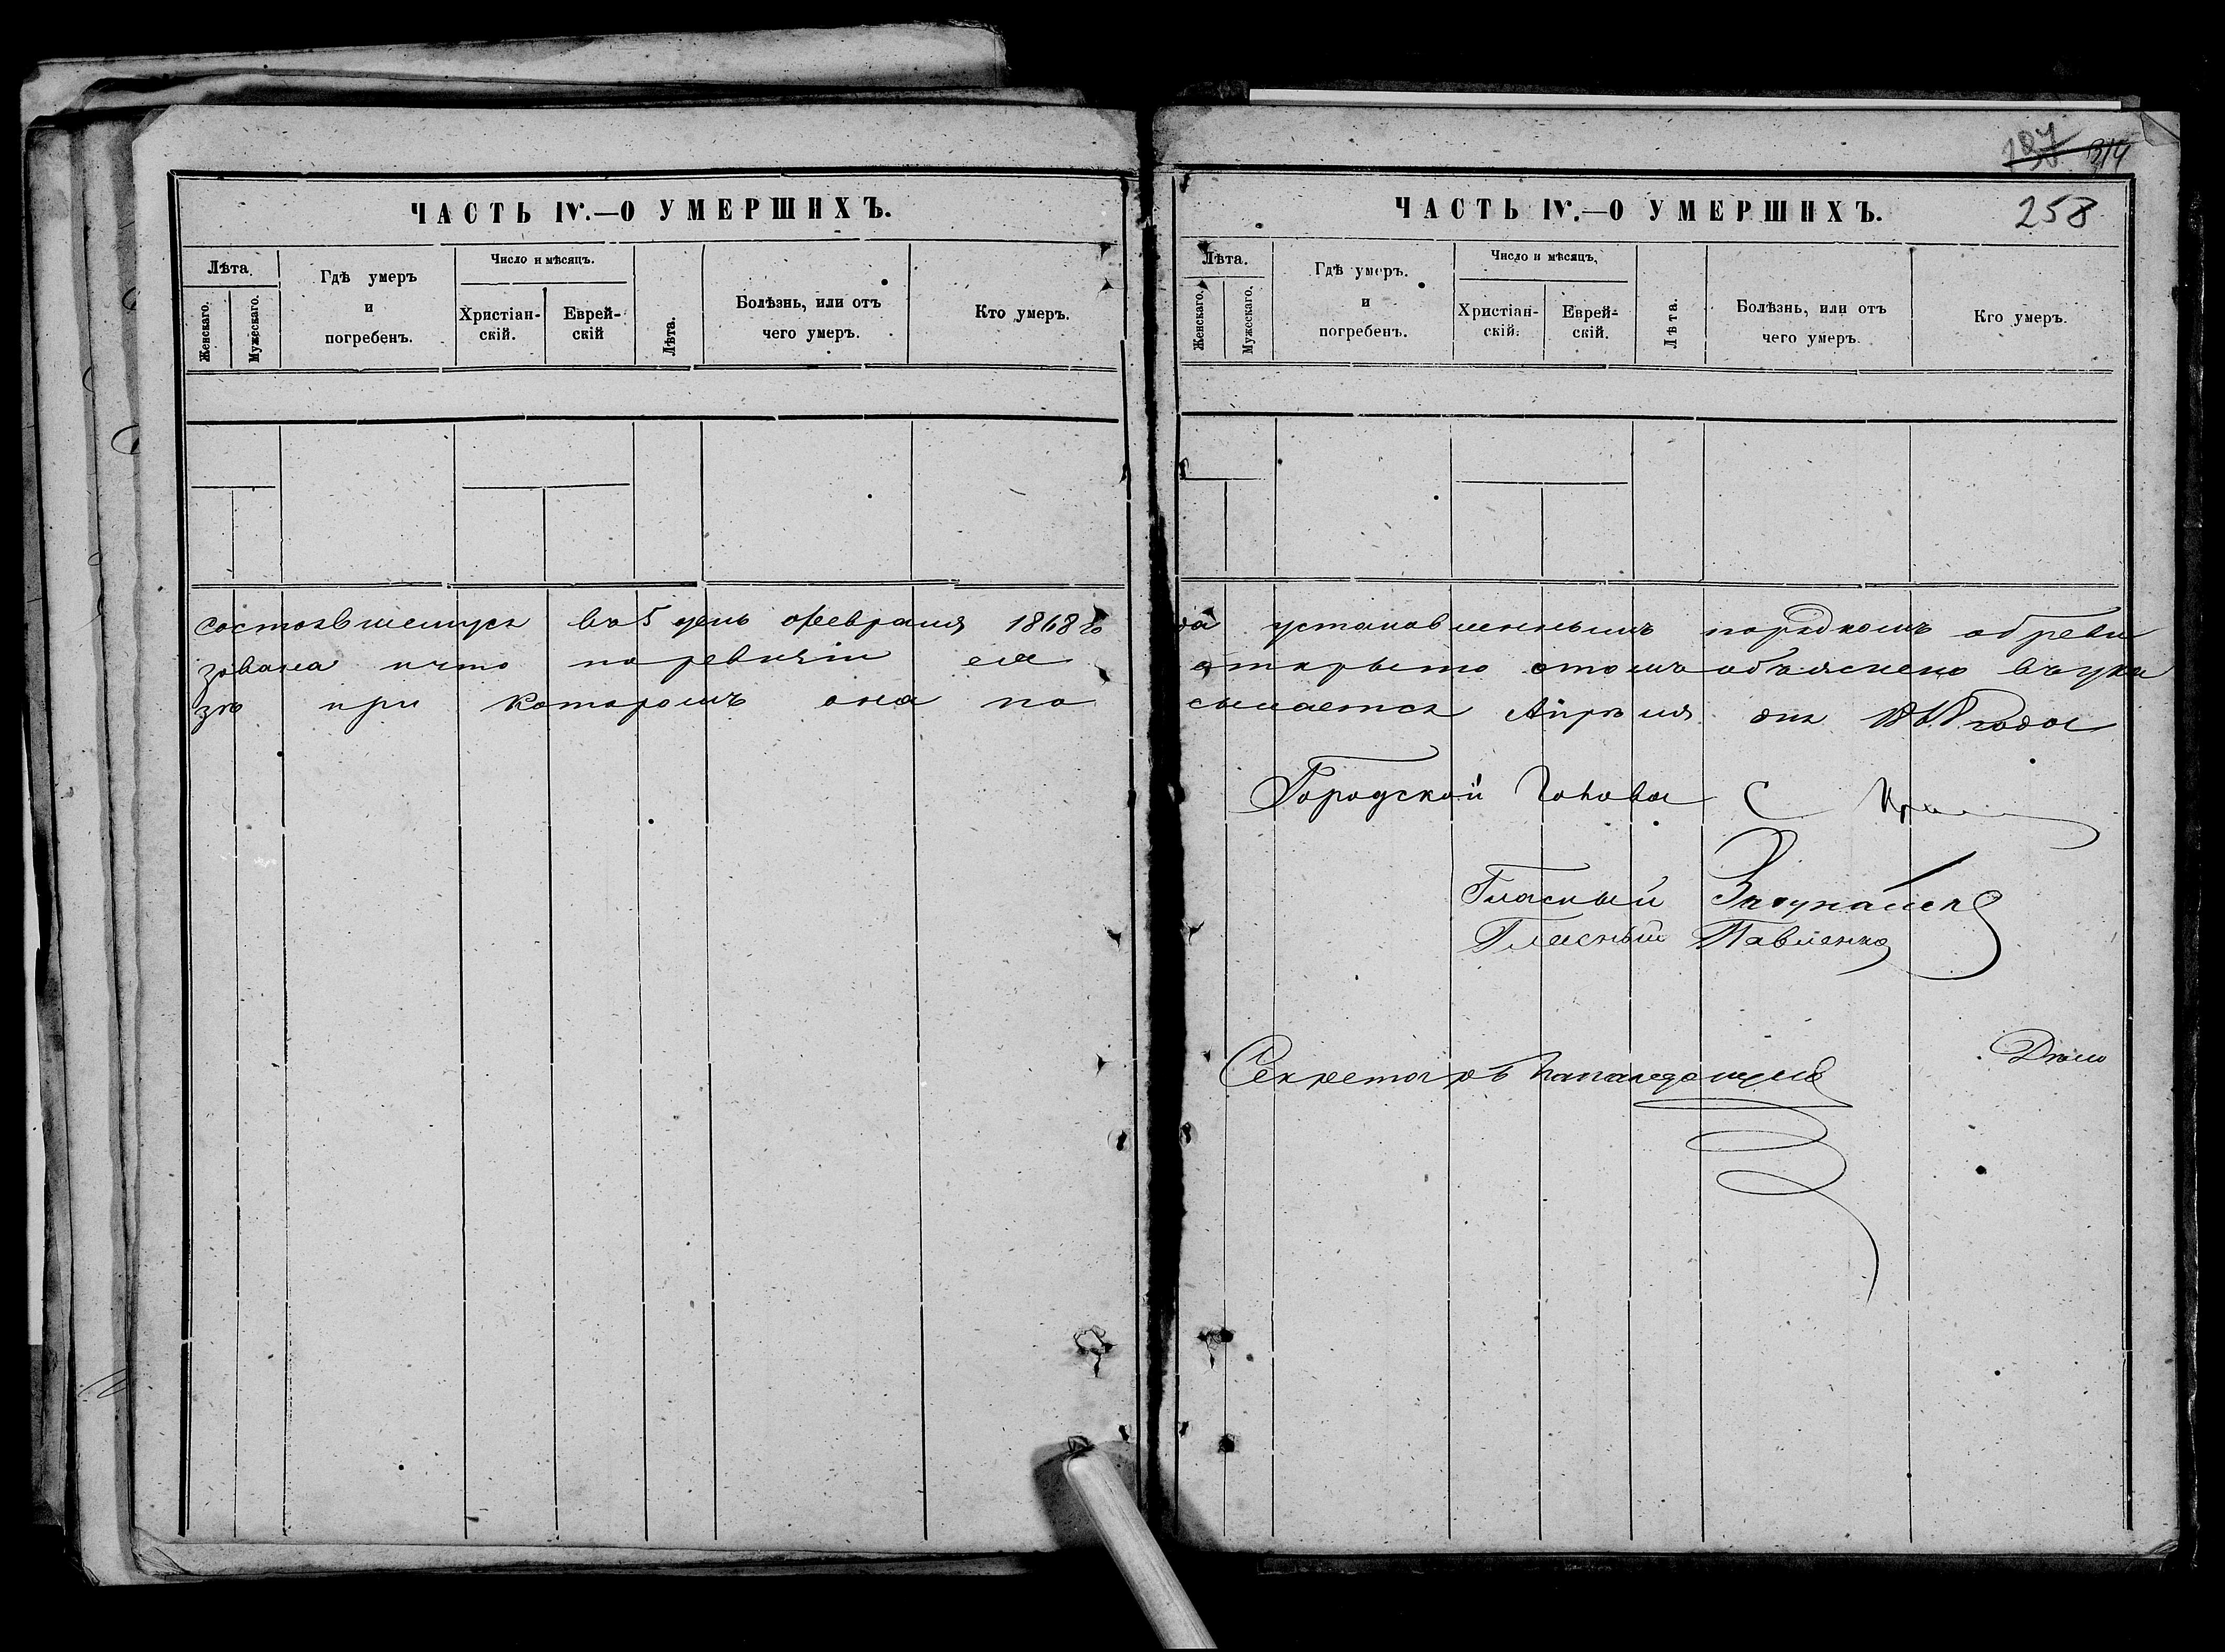 ЧАСТЬ IV.—О УМЕРШИХЪ.
Лѣта
Женскаго.
Мужескаго.
Гдѣ умеръ
и
погребенъ.
Число и мѣсяцъ.
Христіан-
скій.
Еврей-
скій
Лѣта.
Болѣзнь, или отъ
чего умеръ.
Кто умеръ.
состоявшемуся въ 5 день февраля 1868 го
зована и что по ревизіи ея
зѣ при которомъ она по
314
ЧАСТЬ IV.—О УМЕРШИХЪ.
258
Лѣта.
Женскаго.
Мужескаго.
Гдѣ умеръ.
и
погребенъ.
Число и мѣсяцъ,
Христіан-
скій.
Еврей-
скій.
Лѣта.
Болѣзнь, или отъ
чего умеръ.
Кто умеръ.
да установленнымъ порядкомъ обреви
открыто о томъ объяснено въ ука
сылается Апрѣля дня 1868 года
Городской Голова С
Гласный
Гласный Павленко
Секретарь